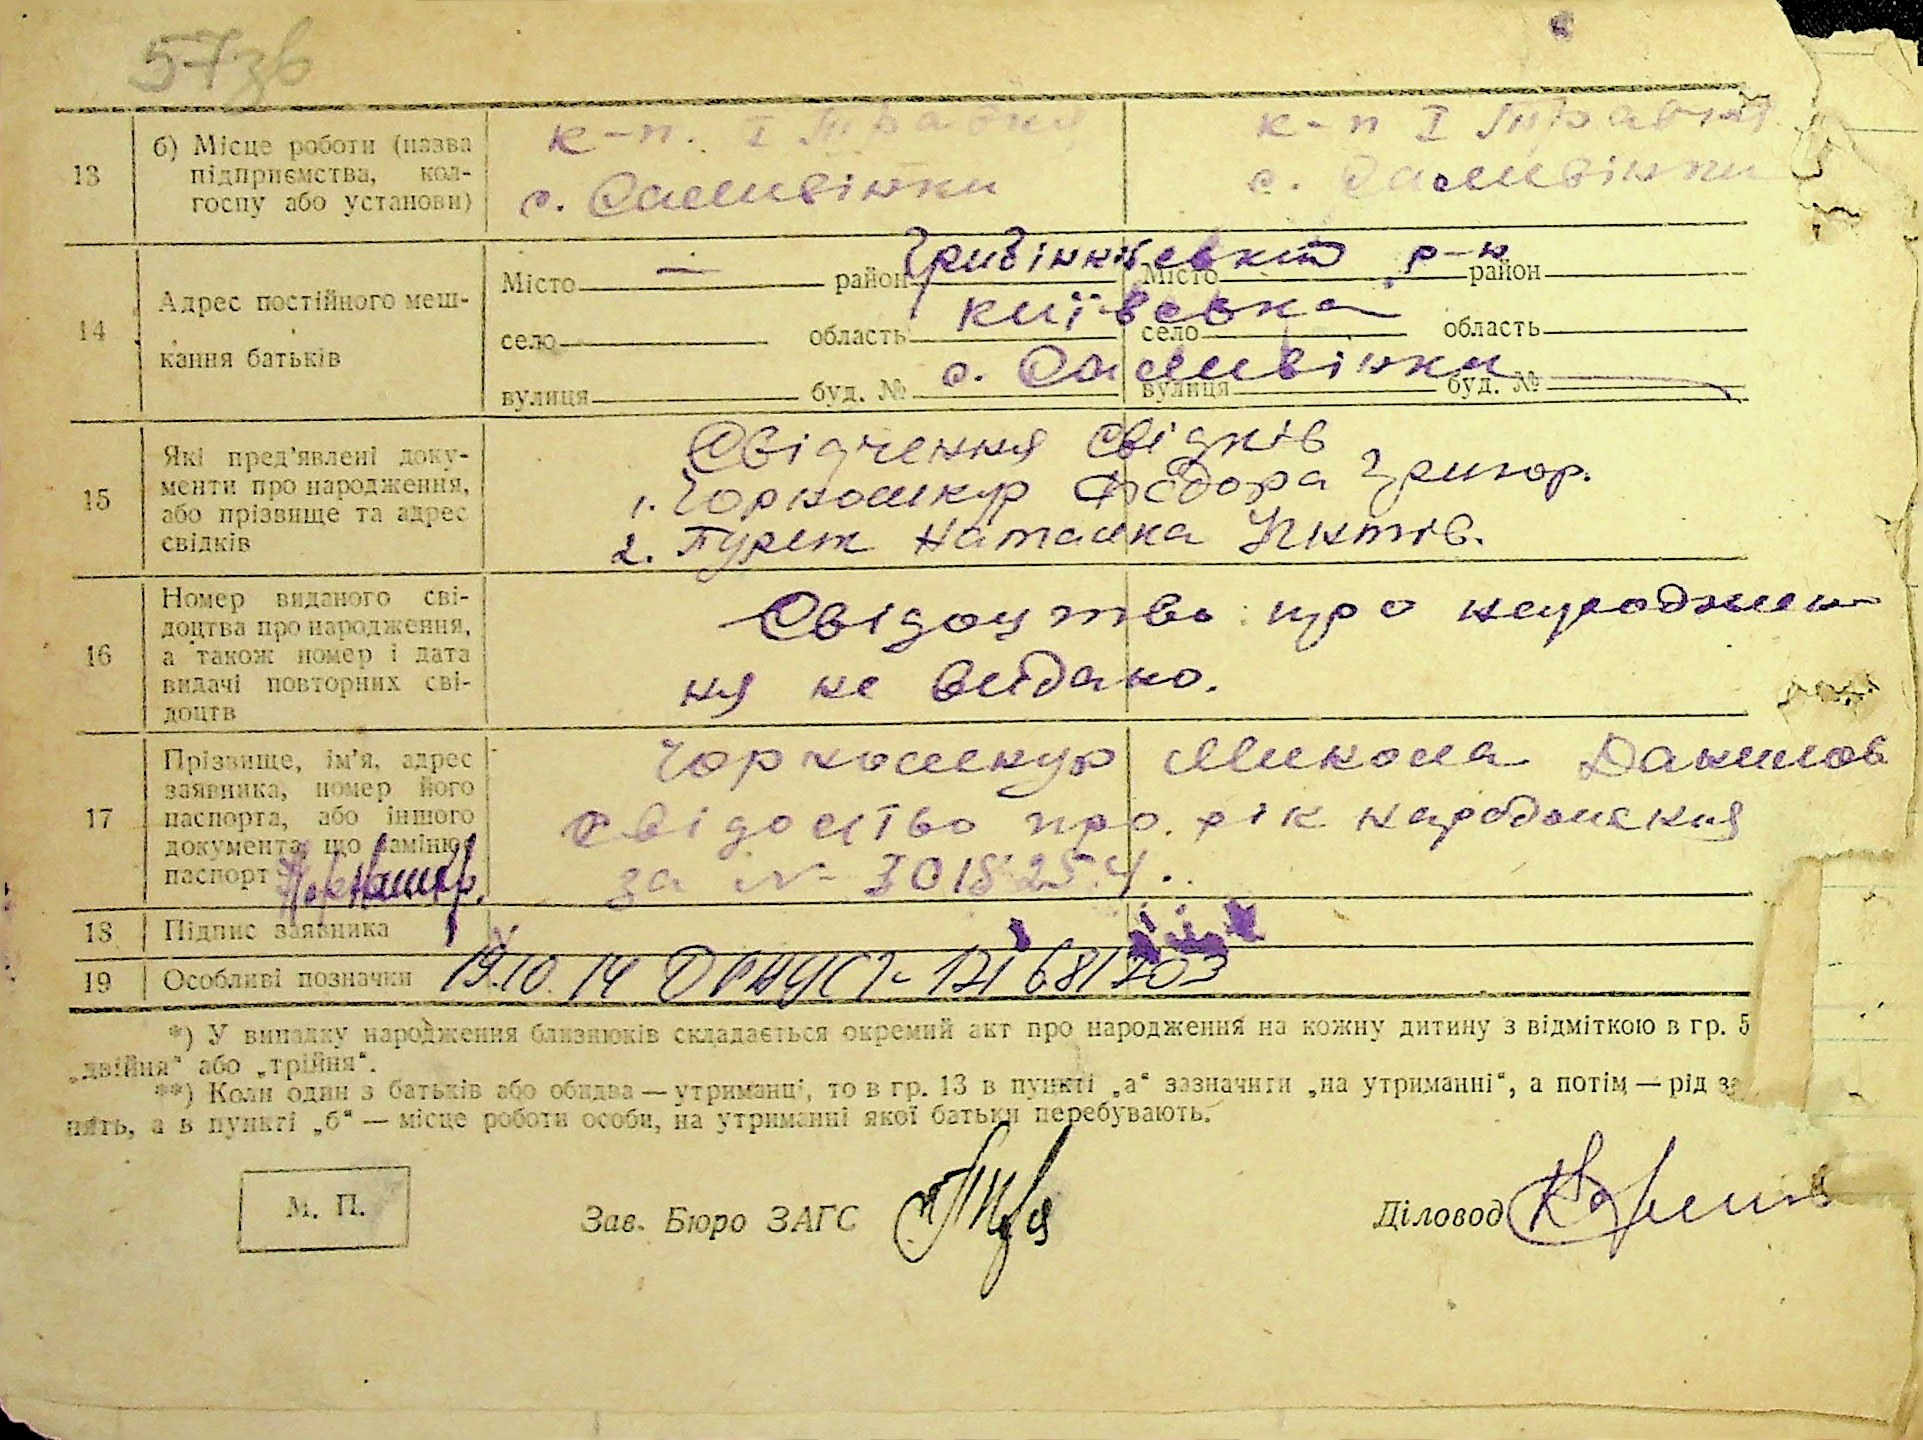 57зв
13
б) Місце роботи (назва
підприємства, кол-
госпу або установи)
к-п. I Травня
с. Саливінки
к-п I Травня
с. Саливінки
14
Адрес постійного меш-
кання батьків
Місто — район Місто район
р-н
село область село область
київська
вулиця буд. № вулиця буд. №
с. Саливінки
15
Які пред'явлені доку-
менти про народження,
або прізвище та адрес
свідків
Свідчення свідків
1. Чорношкур Федора Григор.
2. Наталка
16
Номер виданого сві-
доцтва про народження,
а також номер і дата
видачі повторних сві-
доцтв
Свідоцтво про народжен
ня не видано.
17
Прізвище, ім'я, адрес
заявника, номер його
паспорта, або іншого
документа, що заміню
паспорт
Чорношкур Микола Данилов
свідоцтво про рік народження
за №
18
Підпис заявника
19
Особливі позначки
19.10.14
*) У випадку народження близнюків складається окремий акт про народження на кожну дитину з відміткою в гр. 5
„двійня“ або „трійня“.
**) Коли один з батьків або обидва — утриманці, то в гр. 13 в пункті „а“ зазначити „на утриманні“, а потім — рід за
нять, а в пункті „б“ — місце роботи особи, на утриманні якої батьки перебувають.
М. П.
Зав. Бюро ЗАГС
Діловод